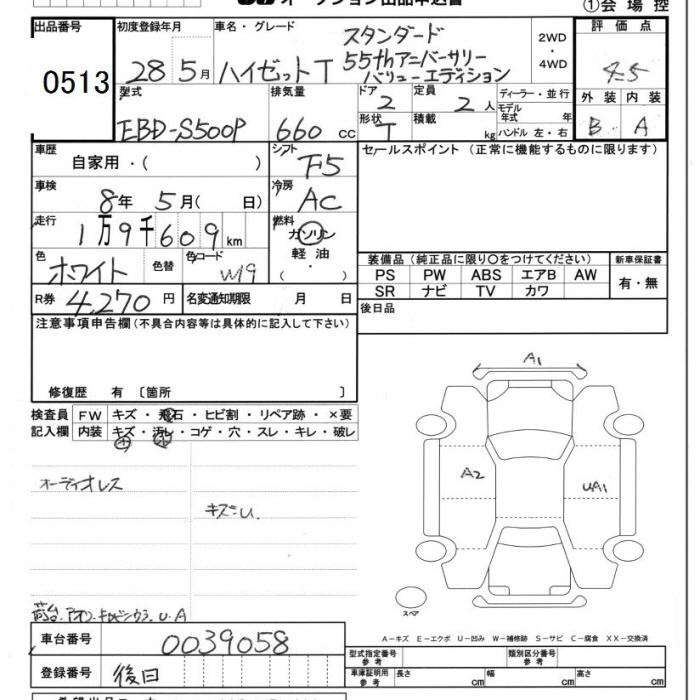 ①会場控
出品番号 0513
初度登録年月 28 5月
車名・グレード ハイゼットT
スタンダード
55thアニバーサリー
バリューエディション
2WD
・
4WD
評価点
4.5
外装 内装
B A
型式 EBD-S500P
排気量 660 cc
ドア 2
形状 T
定員 2人
積載 kg
ディーラー・並行
モデル年式 年
ハンドル 左・右
車歴 自家用・( )
シフト F5
セールスポイント (正常に機能するものに限ります)
車検 8年 5月( 日)
冷房 AC
走行 1万9千609km
燃料 ガソリン
軽油
( ・ )
色 ホワイト 色替
色コード W19
R券 4,270円 名変通知期限 月 日
装備品 (純正品に限り○をつけてください) 新車保証書
PS PW ABS エアB AW
SR ナビ TV カワ
有・無
後日品
注意事項申告欄(不具合内容等は具体的に記入して下さい)
修復歴 有 〔箇所 〕
検査員 FW キズ・飛石・ヒビ割・リペア跡・×要
記入欄 内装 キズ・汚レ・コゲ・穴・スレ・キレ・破レ
オーディオレス
キズ=U.
U.A
A1
A2
UA1
スペア
A-キズ E-エクボ U-凹み W-補修跡 S-サビ C-腐食 XX-交換済
車台番号 0039058
登録番号 後日
型式指定番号 参考
類別区分番号 参考
車庫証明用 参考 長さ cm 幅 cm 高さ cm